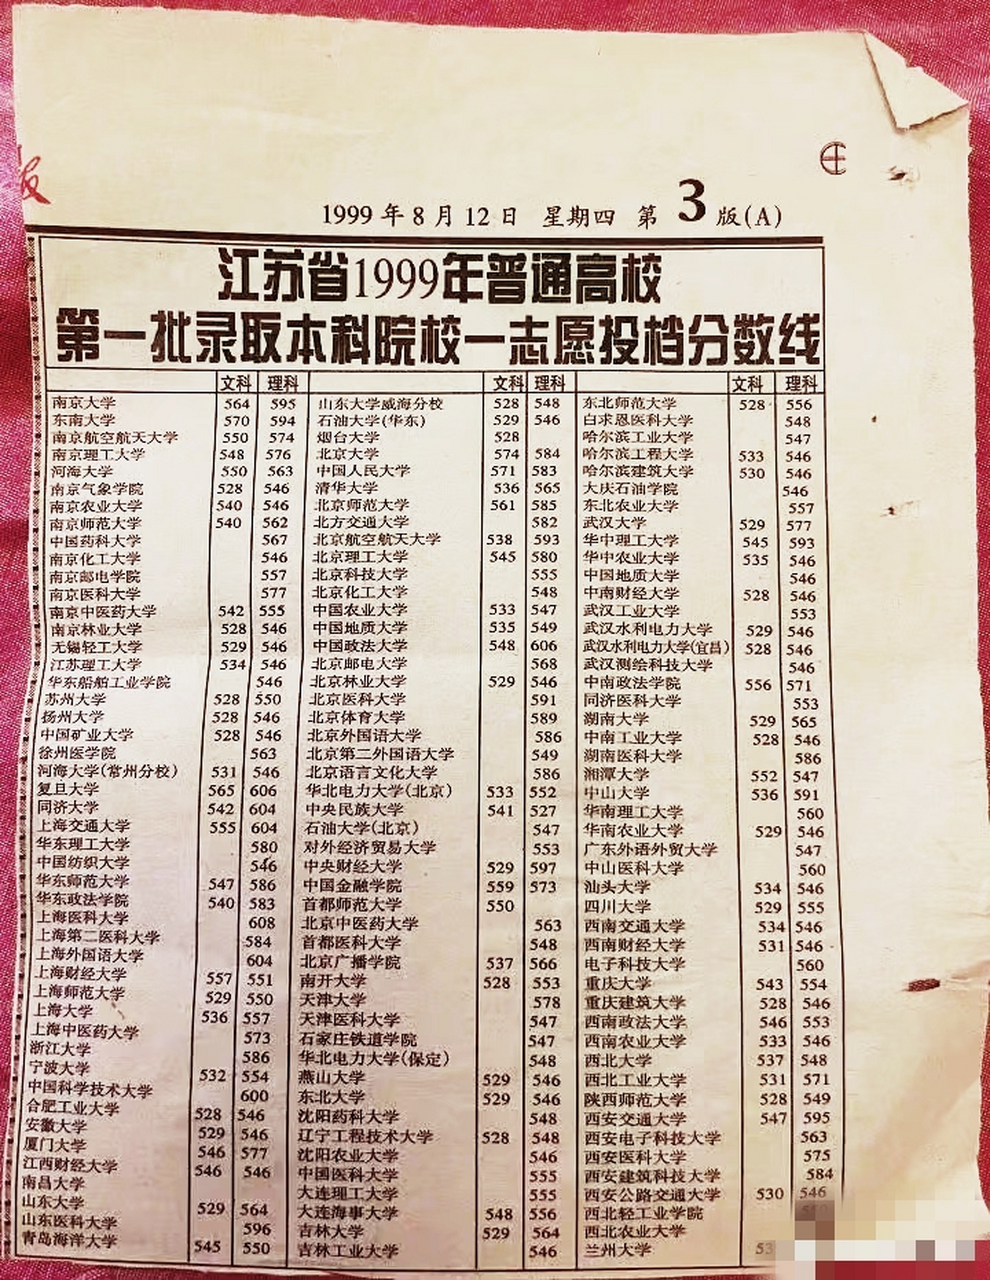 报
1999年8月12日 星期四 第3版(A)
江苏省1999年普通高校
第一批录取本科院校一志愿投档分数线
文科 理科 文科 理科 文科 理科
南京大学 564 595
东南大学 570 594
南京航空航天大学 550 574
南京理工大学 548 576
河海大学 550 563
南京气象学院 528 546
南京农业大学 540 546
南京师范大学 540 562
中国药科大学 567
南京化工大学 546
南京邮电学院 557
南京医科大学 577
南京中医药大学 542 555
南京林业大学 528 546
无锡轻工大学 529 546
江苏理工大学 534 546
华东船舶工业学院 546
苏州大学 528 550
扬州大学 528 546
中国矿业大学 528 546
徐州医学院 563
河海大学(常州分校) 531 546
复旦大学 565 606
同济大学 542 604
上海交通大学 555 604
华东理工大学 580
中国纺织大学 546
华东师范大学 547 586
华东政法学院 540 583
上海医科大学 608
上海第二医科大学 584
上海外国语大学 604
上海财经大学 557 551
上海师范大学 529 550
上海大学 536 557
上海中医药大学 573
浙江大学 586
宁波大学 532 554
中国科学技术大学 600
合肥工业大学 528 546
安徽大学 529 546
厦门大学 546 577
江西财经大学 546 546
南昌大学
山东大学 529 564
山东医科大学 596
青岛海洋大学 545 550
山东大学威海分校 528 548
石油大学(华东) 529 546
烟台大学 528
北京大学 574 584
中国人民大学 571 583
清华大学 536 565
北京师范大学 561 585
北方交通大学 582
北京航空航天大学 538 593
北京理工大学 545 580
北京科技大学 555
北京化工大学 548
中国农业大学 533 547
中国地质大学 535 549
中国政法大学 548 606
北京邮电大学 568
北京林业大学 529 546
北京医科大学 591
北京体育大学 589
北京外国语大学 586
北京第二外国语大学 549
北京语言文化大学 586
华北电力大学(北京) 533 552
中央民族大学 541 527
石油大学(北京) 547
对外经济贸易大学 553
中央财经大学 529 597
中国金融学院 559 573
首都师范大学 550
北京中医药大学 563
首都医科大学 548
北京广播学院 537 566
南开大学 528 553
天津大学 578
天津医科大学 547
石家庄铁道学院 547
华北电力大学(保定) 548
燕山大学 529 546
东北大学 529 546
沈阳药科大学 548
辽宁工程技术大学 528 548
沈阳农业大学 546
中国医科大学 555
大连理工大学 555
大连海事大学 548 556
吉林大学 529 564
吉林工业大学 546
东北师范大学 528 556
白求恩医科大学 548
哈尔滨工业大学 547
哈尔滨工程大学 533 546
哈尔滨建筑大学 530 546
大庆石油学院 546
东北农业大学 557
武汉大学 529 577
华中理工大学 545 593
华中农业大学 535 546
中国地质大学 546
中南财经大学 528 546
武汉工业大学 553
武汉水利电力大学 529 546
武汉水利电力大学(宜昌) 528 546
武汉测绘科技大学 546
中南政法学院 556 571
同济医科大学 553
湖南大学 529 565
中南工业大学 528 546
湖南医科大学 586
湘潭大学 552 547
中山大学 536 591
华南理工大学 560
华南农业大学 529 546
广东外语外贸大学 547
中山医科大学 560
汕头大学 534 546
四川大学 529 555
西南交通大学 534 546
西南财经大学 531 546
电子科技大学 560
重庆大学 543 554
重庆建筑大学 528 546
西南政法大学 546 553
西南农业大学 533 546
西北大学 537 548
西北工业大学 531 571
陕西师范大学 528 549
西安交通大学 547 595
西安电子科技大学 563
西安医科大学 575
西安建筑科技大学 584
西安公路交通大学 530 546
西北轻工业学院
西北农业大学
兰州大学